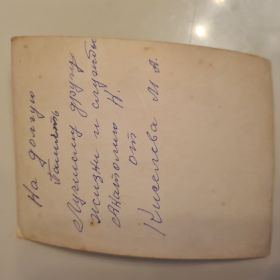 На долгую
Память
Лучшему другу
жизни и службы
Анатолию К.
от
Киселева М. А.